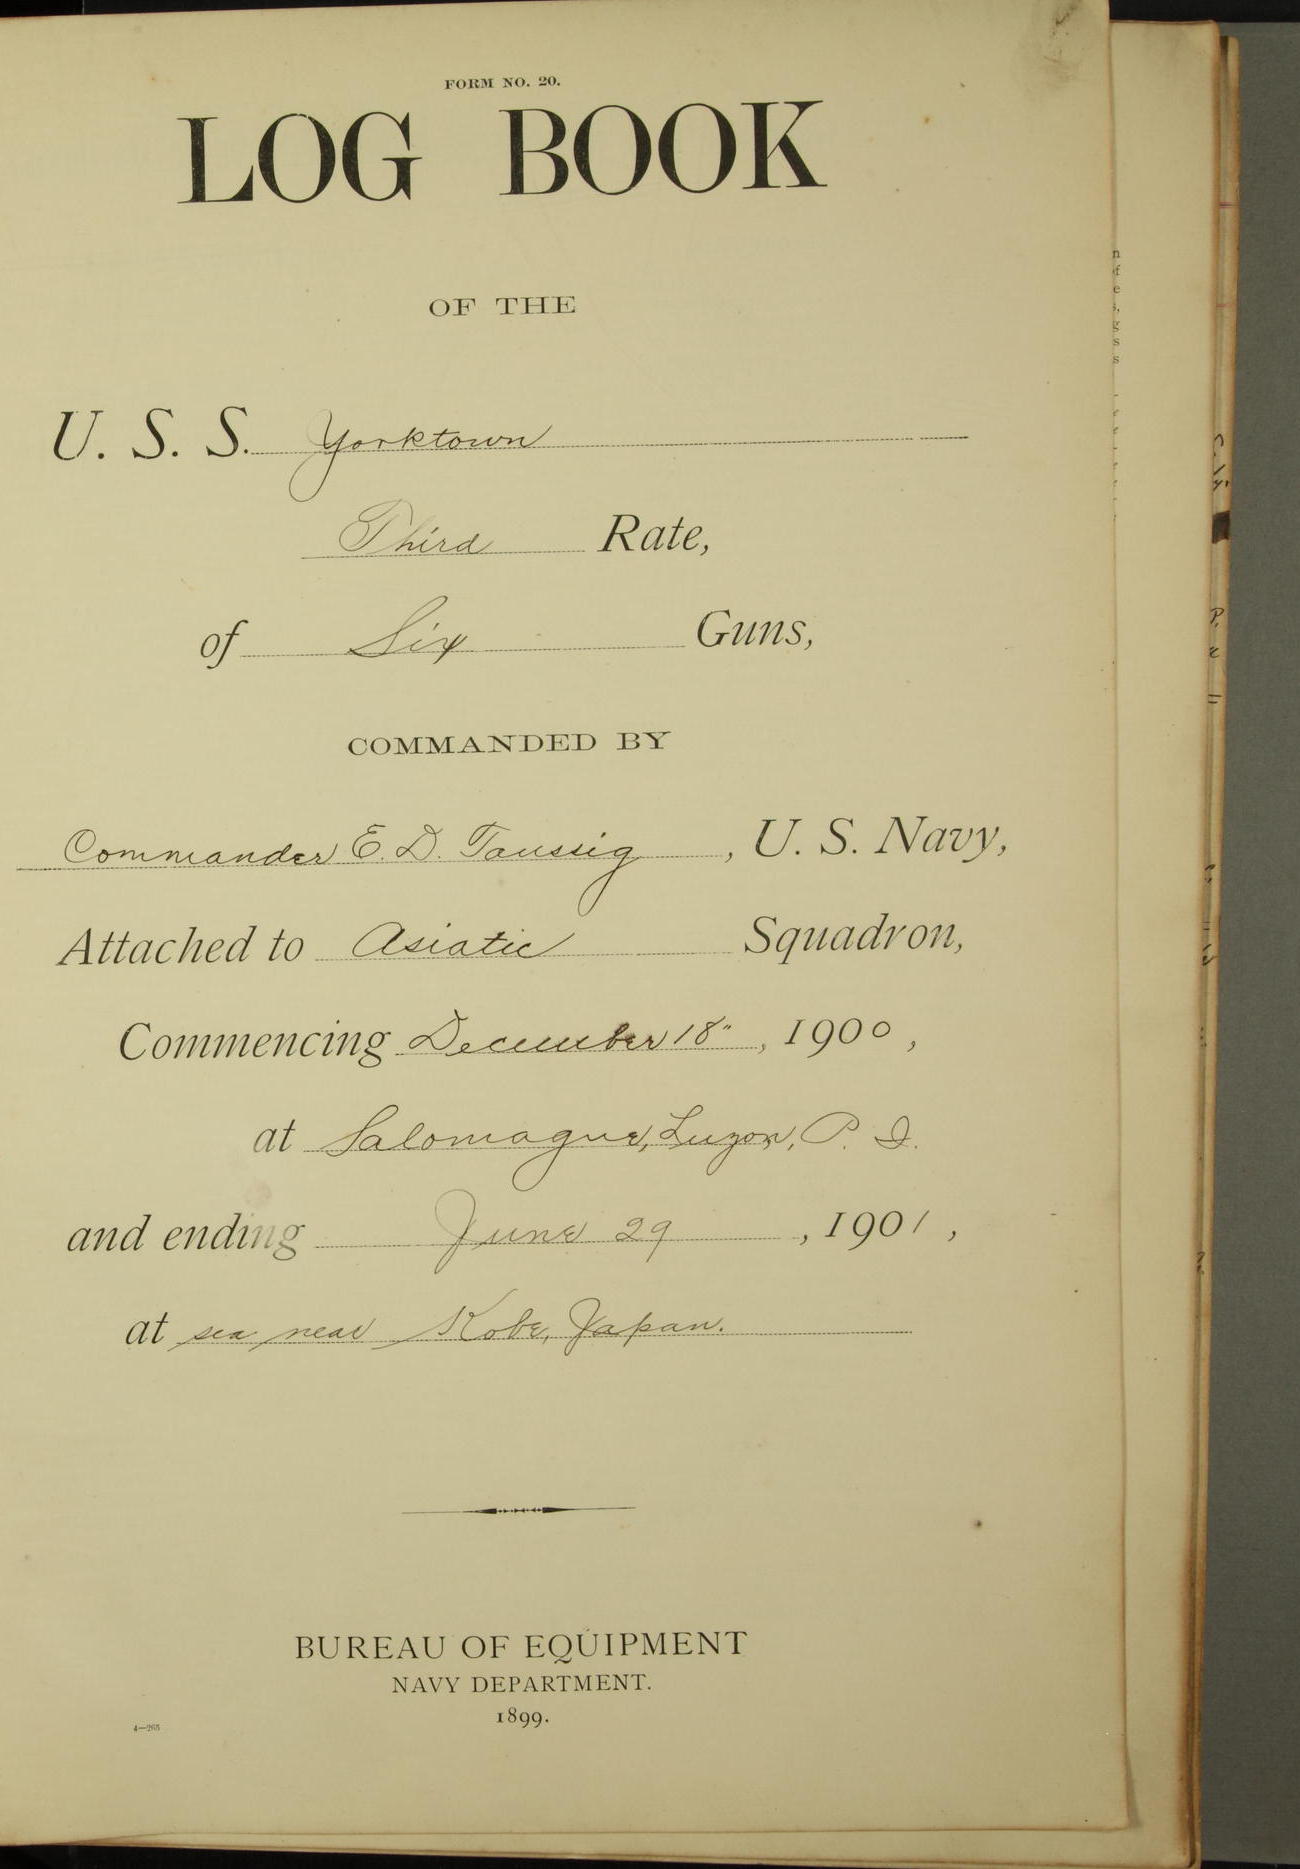 FORM NO. 20.
LOG BOOK
OF THE
U. S. S. Yorktown
Third Rate,
of Six Guns,
COMMANDED BY
Commander E. D. Taussig, U. S. Navy,
Attached to Asiatic Squadron,
Commencing December 18", 1900,
at Salomague, Luzon, P. I.
and ending June 29, 1901,
at sea near Kobe, Japan.
BUREAU OF EQUIPMENT
NAVY DEPARTMENT.
1899.
4—265